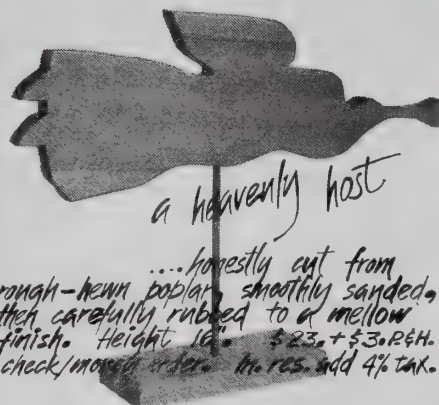 a heavenly host
....honestly cut from
rough-hewn poplar, smoothly sanded,
then carefully rubbed to a mellow
finish. Height 16". $23. + $3. P&H.
check/money order. In. res. add 4% tax.